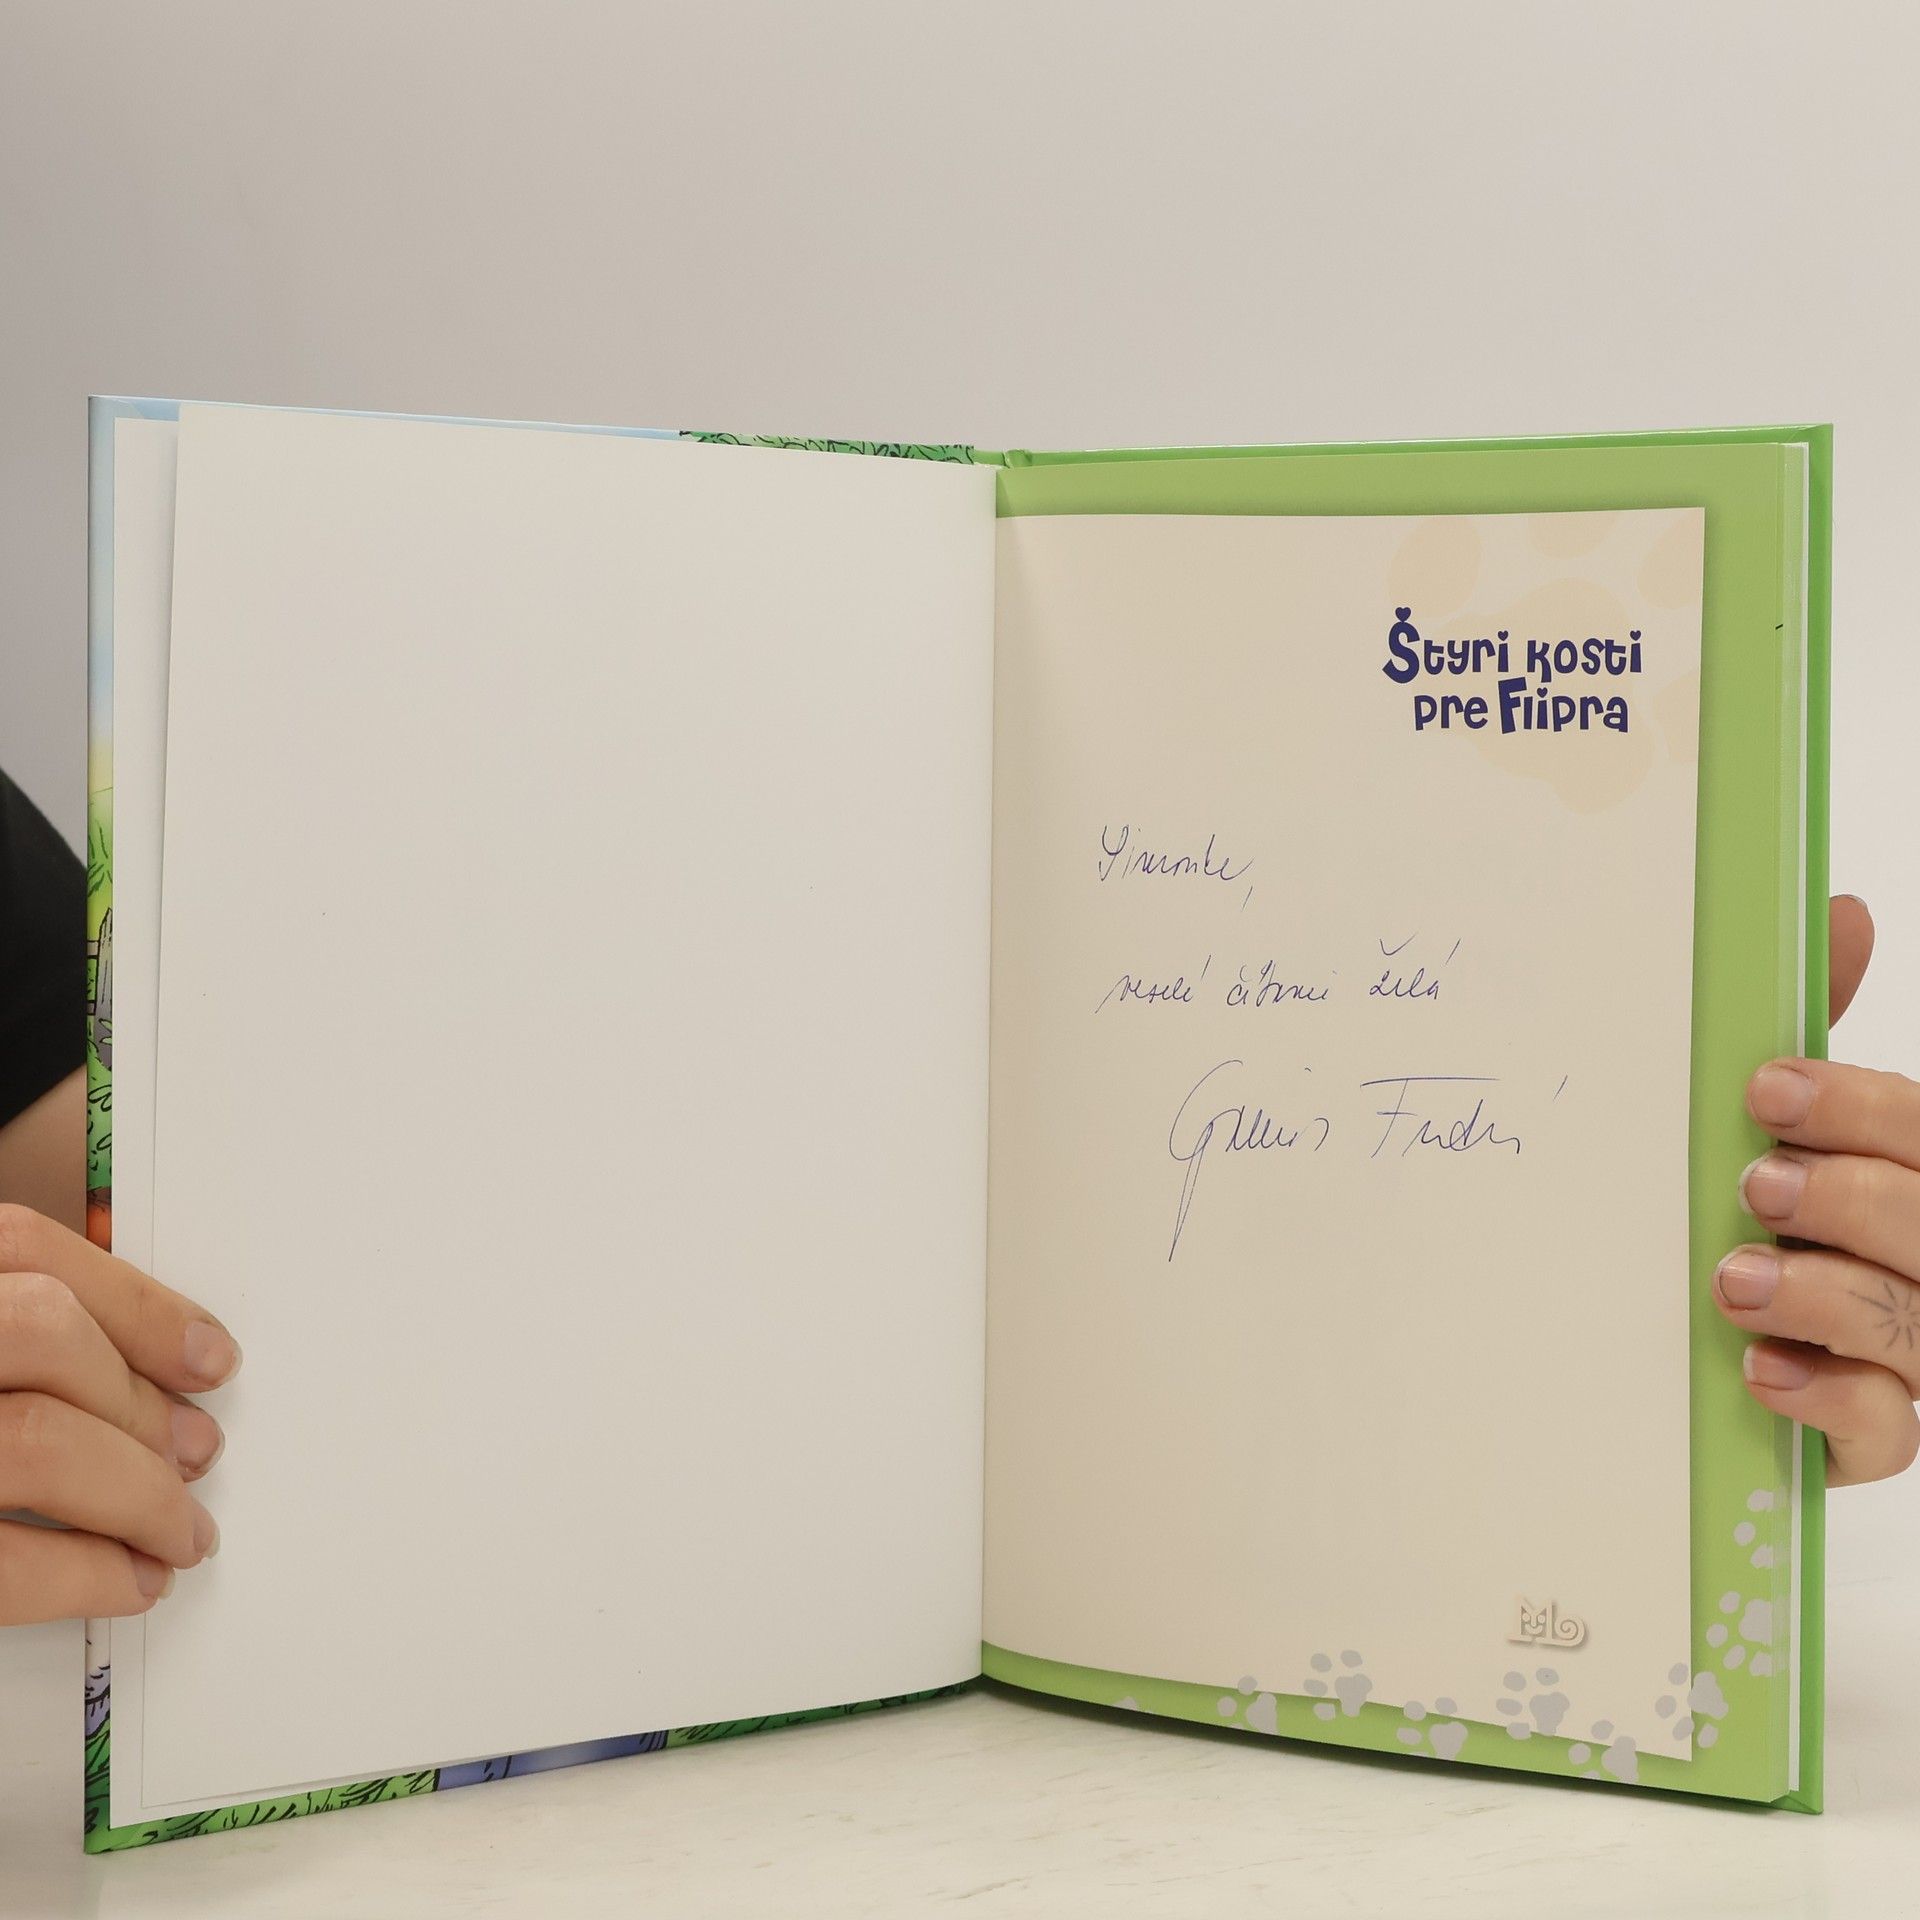 Štyri kosti
pre Flipra
Simonke,
veselé čítanie želá